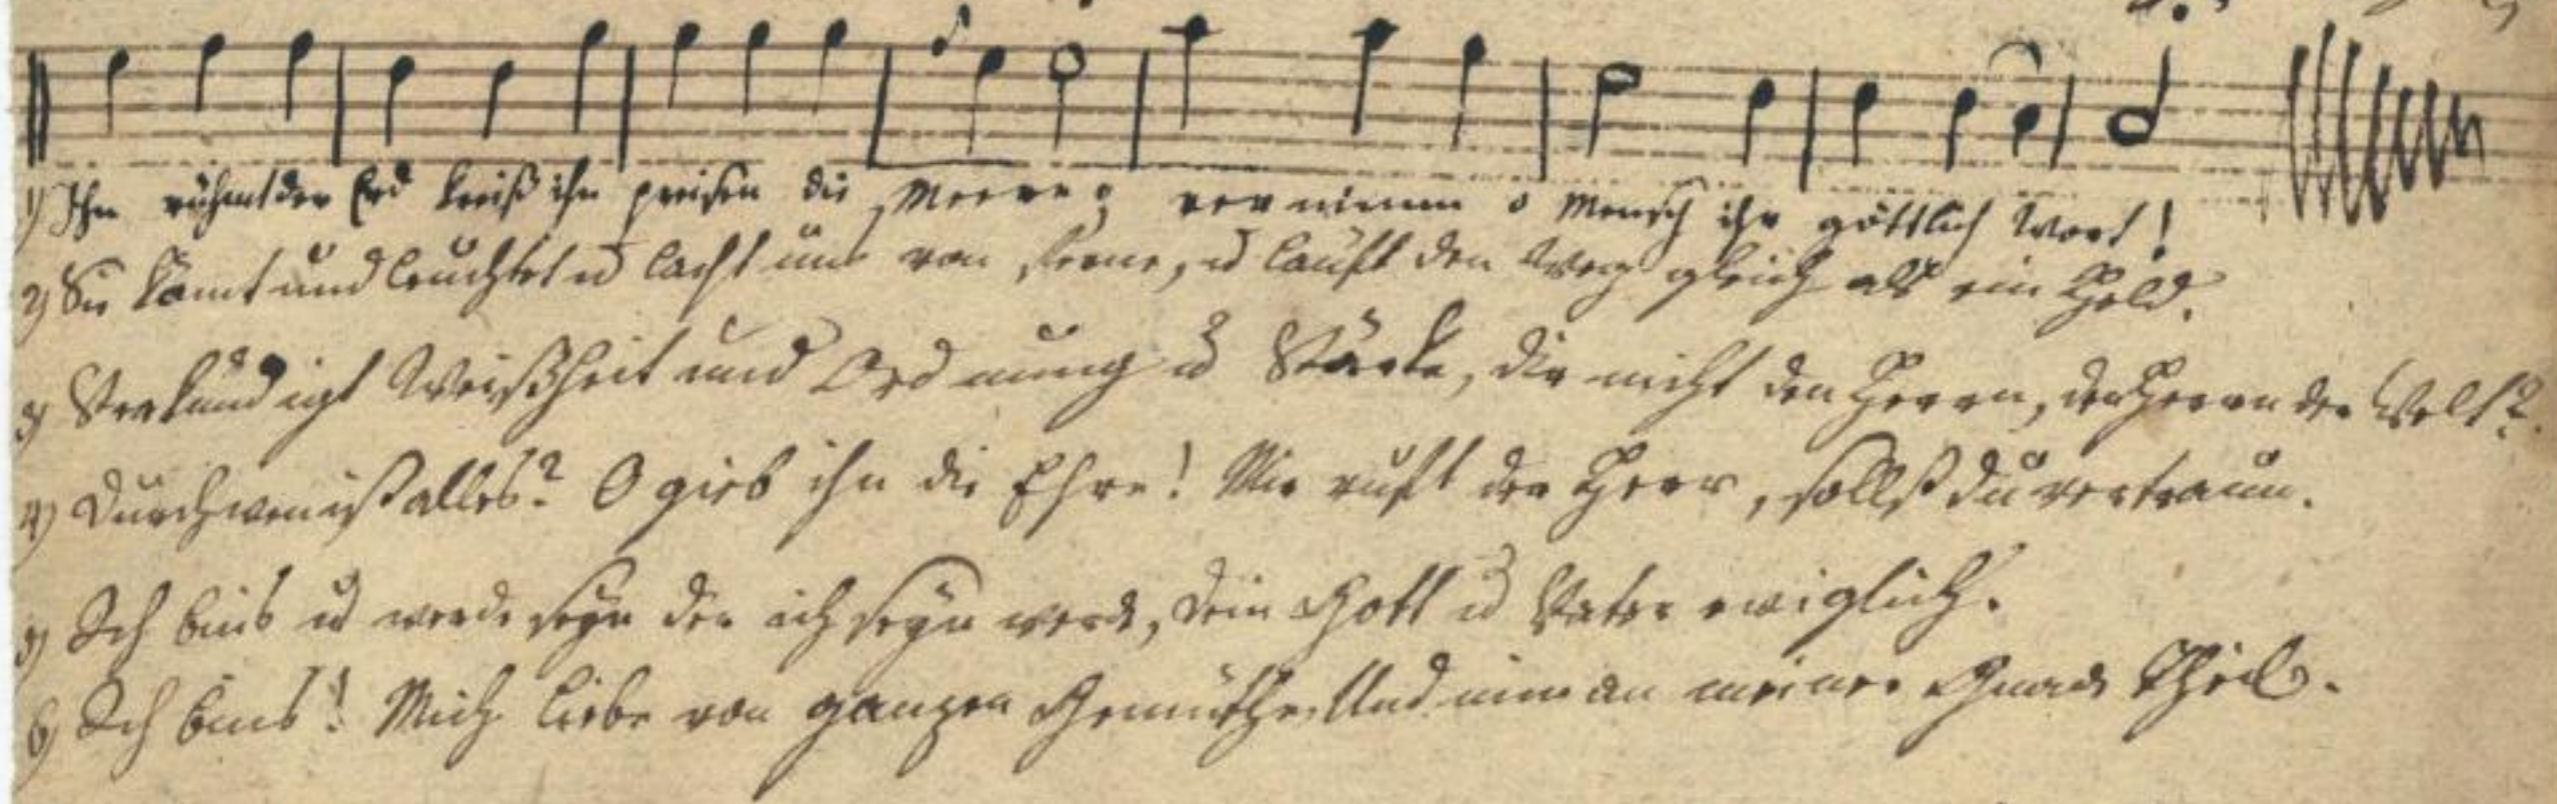 1) Ihn rühmt der Erd kreiß ihn preisen die Meere; vernimm o Mensch ihr göttlich Wort!
2) Sie kömt und leuchtet u lacht uns von ferne, u läuft den Weg gleich als ein Held.
3) Verkündigt Weißheit und Ordnung u Stärke, dir nicht den Herrn, den Herrn der Welt?
4) Durch wen ist alles? O gieb ihn die Ehre! Mir ruft der Herr, sollst du vertraun.
5) Ich bins u werde seyn der ich seyn werde, dein Gott u Vater ewiglich.
6) Ich bins! Mich liebe von ganzen Gemüthe, Und nim an meiner Gnade Theil.